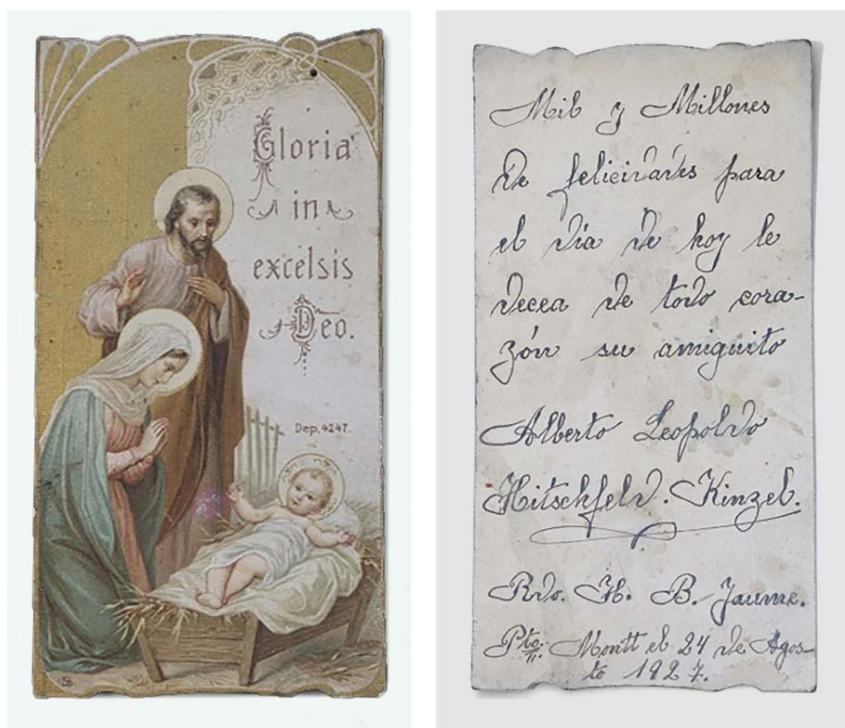 Gloria
in
excelsis
Deo.
Dep. 4247.
Mil y Millones
de felicidades para
el día de hoy le
decea de todo cora-
zón su amiguito
Alberto Leopoldo
Hitschfeld. Kinzel.
Rdo. H. B. Jaume.
Pto. Montt el 24 de Agos-
to 1927.